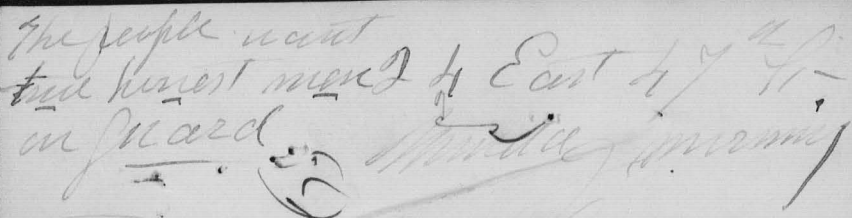 The people want
true honest men 24 East 47th St-
on guard